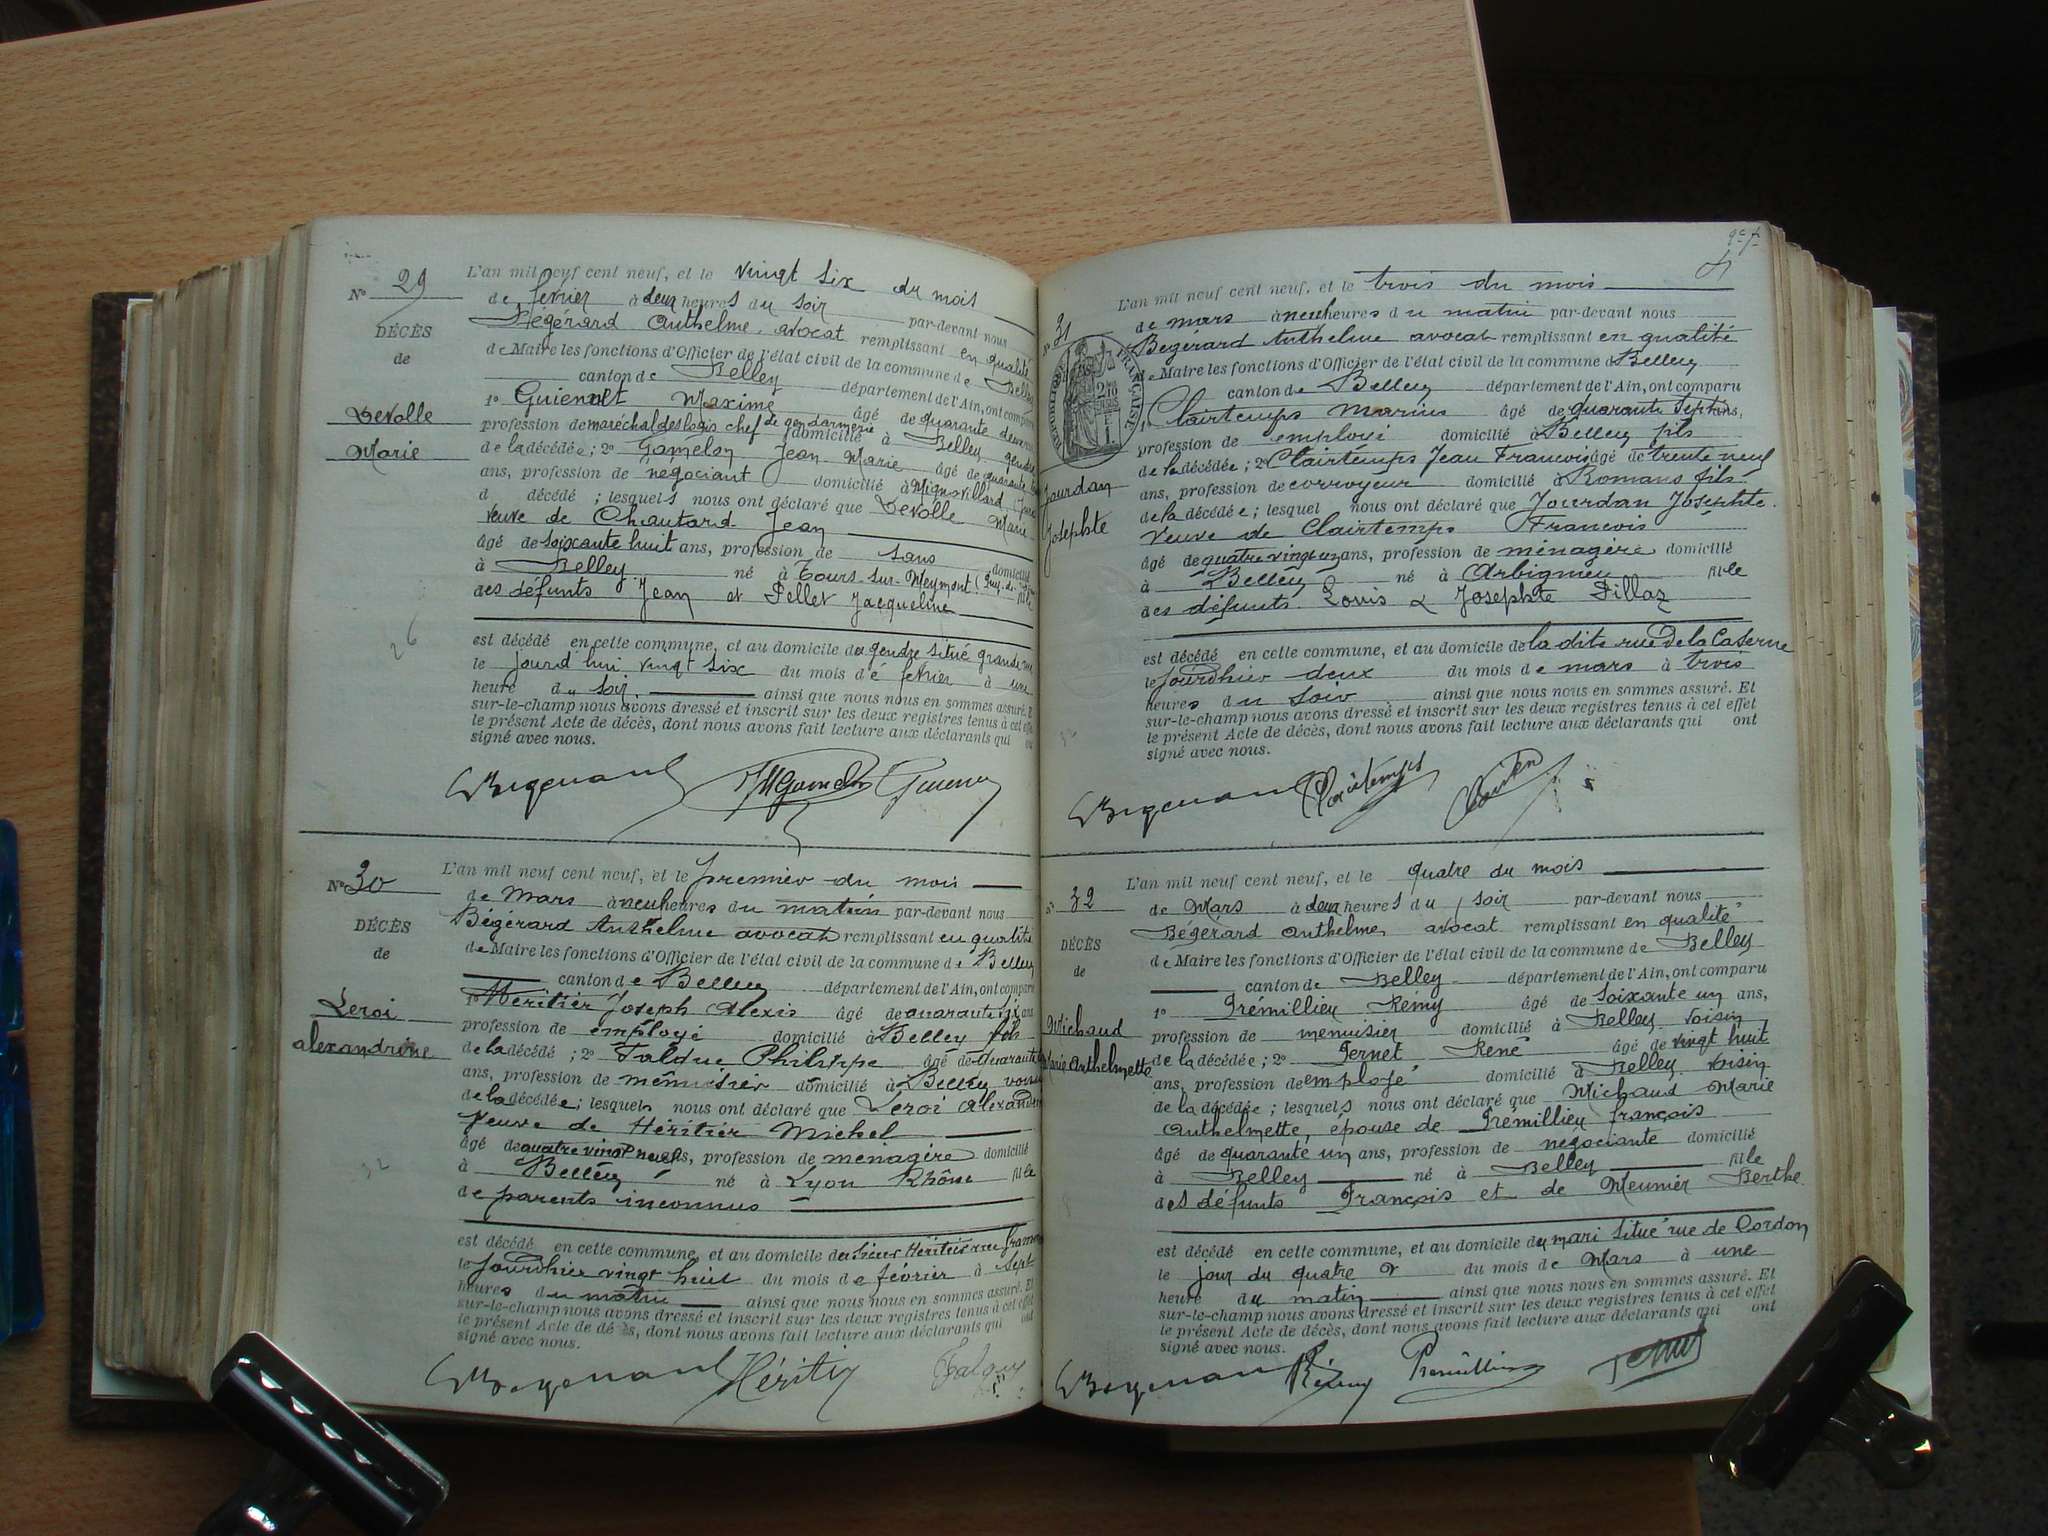 N° 29
DÉCÈS
de
Devolle
Marie
L'an mil neuf cent neuf, et le vingt six du mois
de fevrier à deux heures du soir par-devant nous
Bégérard Anthelme avocat remplissant en qualité
de Maire les fonctions d'Officier de l'état civil de la commune de Belley
canton de Belley département de l'Ain, ont comparu
1° Maxime âgé de quarante deux ans
profession de maréchal des logis chef de gendarmerie domicilié à Belley gendre
de la décédée ; 2° Gamelon Jean Marie âgé de quarante
ans, profession de négociant domicilié à Mignovillard (Jura)
d décédé ; lesquels nous ont déclaré que Devolle Marie
veuve de Chautard Jean
âgé de soixante huit ans, profession de sans domicilié
à Belley né à Tours-sur-Meymont (Puy-de-Dôme) fille
des défunts Jean et Pellet Jacqueline
est décédé en cette commune, et au domicile du gendre situé grande rue
le jourd'hui vingt six du mois de fevrier à une
heure du soir. ainsi que nous nous en sommes assuré. Et
sur-le-champ nous avons dressé et inscrit sur les deux registres tenus à cet effet
le présent Acte de décès, dont nous avons fait lecture aux déclarants qui ont
signé avec nous.
26
N° 30
DÉCÈS
de
Leroi
alexandrine
L'an mil neuf cent neuf, et le premier du mois
de Mars à neuf heures du matin par-devant nous
Bégérard Anthelme avocat remplissant en qualité
de Maire les fonctions d'Officier de l'état civil de la commune de Belley
canton de Belley département de l'Ain, ont comparu
1° Héritier Joseph Alexis âgé de quarante six ans
profession de employé domicilié à Belley fils
de la décédé ; 2° Philippe âgé de quarante
ans, profession de menuisier domicilié à Belley voisin
de la décédée ; lesquels nous ont déclaré que Leroi Alexandrine
Veuve de Héritier Michel
âgé de quatre vingt neuf ans, profession de ménagère domicilié
à Belley né à Lyon Rhône fille
de parents inconnus
est décédé en cette commune, et au domicile du sieur Héritier rue
le jourdhier vingt huit du mois de février à sept
heures du matin ainsi que nous nous en sommes assuré. Et
sur-le-champ nous avons dressé et inscrit sur les deux registres tenus à cet effet
le présent Acte de décès, dont nous avons fait lecture aux déclarants qui ont
signé avec nous.
32
Héritier
N° 31
RÉPUBLIQUE FRANÇAISE
Jourdan
Josephte
L'an mil neuf cent neuf, et le trois du mois
de mars à neuf heures du matin par-devant nous
Bégérard Anthelme avocat remplissant en qualité
de Maire les fonctions d'Officier de l'état civil de la commune d Belley
canton de Belley département de l'Ain, ont comparu
1° Clairtemps Marius âgé de quarante sept ans,
profession de employé domicilié à Belley fils
de la décédée ; 2° Clairtemps Jean Francois âgé de trente neuf
ans, profession de corroyeur domicilié à Romans fils
de la décédée ; lesquel nous ont déclaré que Jourdan Josephte
veuve de Clairtemps Francois
âgé de quatre vingt un ans, profession de ménagère domicilié
à Belley né à Arbignieu fille
des défunts Louis & Josephte Pillaz
est décédé en cette commune, et au domicile de la dite rue de la Caserne
le jourdhier deux du mois de mars à trois
heures du soir ainsi que nous nous en sommes assuré. Et
sur-le-champ nous avons dressé et inscrit sur les deux registres tenus à cet effet
le présent Acte de décès, dont nous avons fait lecture aux déclarants qui ont
signé avec nous.
Clairtemps
N° 32
DÉCÈS
de
Michaud
Marie Anthelmette
L'an mil neuf cent neuf, et le quatre du mois
de Mars à deux heures du soir par-devant nous
Bégérard Anthelme avocat remplissant en qualité
de Maire les fonctions d'Officier de l'état civil de la commune de Belley
canton de Belley département de l'Ain, ont comparu
1° Prémillieu Rémy âgé de soixante un ans,
profession de menuisier domicilié à Belley voisin
de la décédée ; 2° Pernet René âgé de vingt huit
ans, profession de employé domicilié à Belley voisin
de la décédée ; lesquels nous ont déclaré que Michaud Marie
Anthelmette, épouse de Prémillieu françois
âgé de quarante un ans, profession de négociante domicilié
à Belley né à Belley fille
des défunts François et de Meunier Berthe
est décédé en cette commune, et au domicile du mari situé rue de Cordon
le jour du quatre du mois de Mars à une
heure du matin ainsi que nous nous en sommes assuré. Et
sur-le-champ nous avons dressé et inscrit sur les deux registres tenus à cet effet
le présent Acte de décès, dont nous avons fait lecture aux déclarants qui ont
signé avec nous.
Rémy Prémillieu Pernet